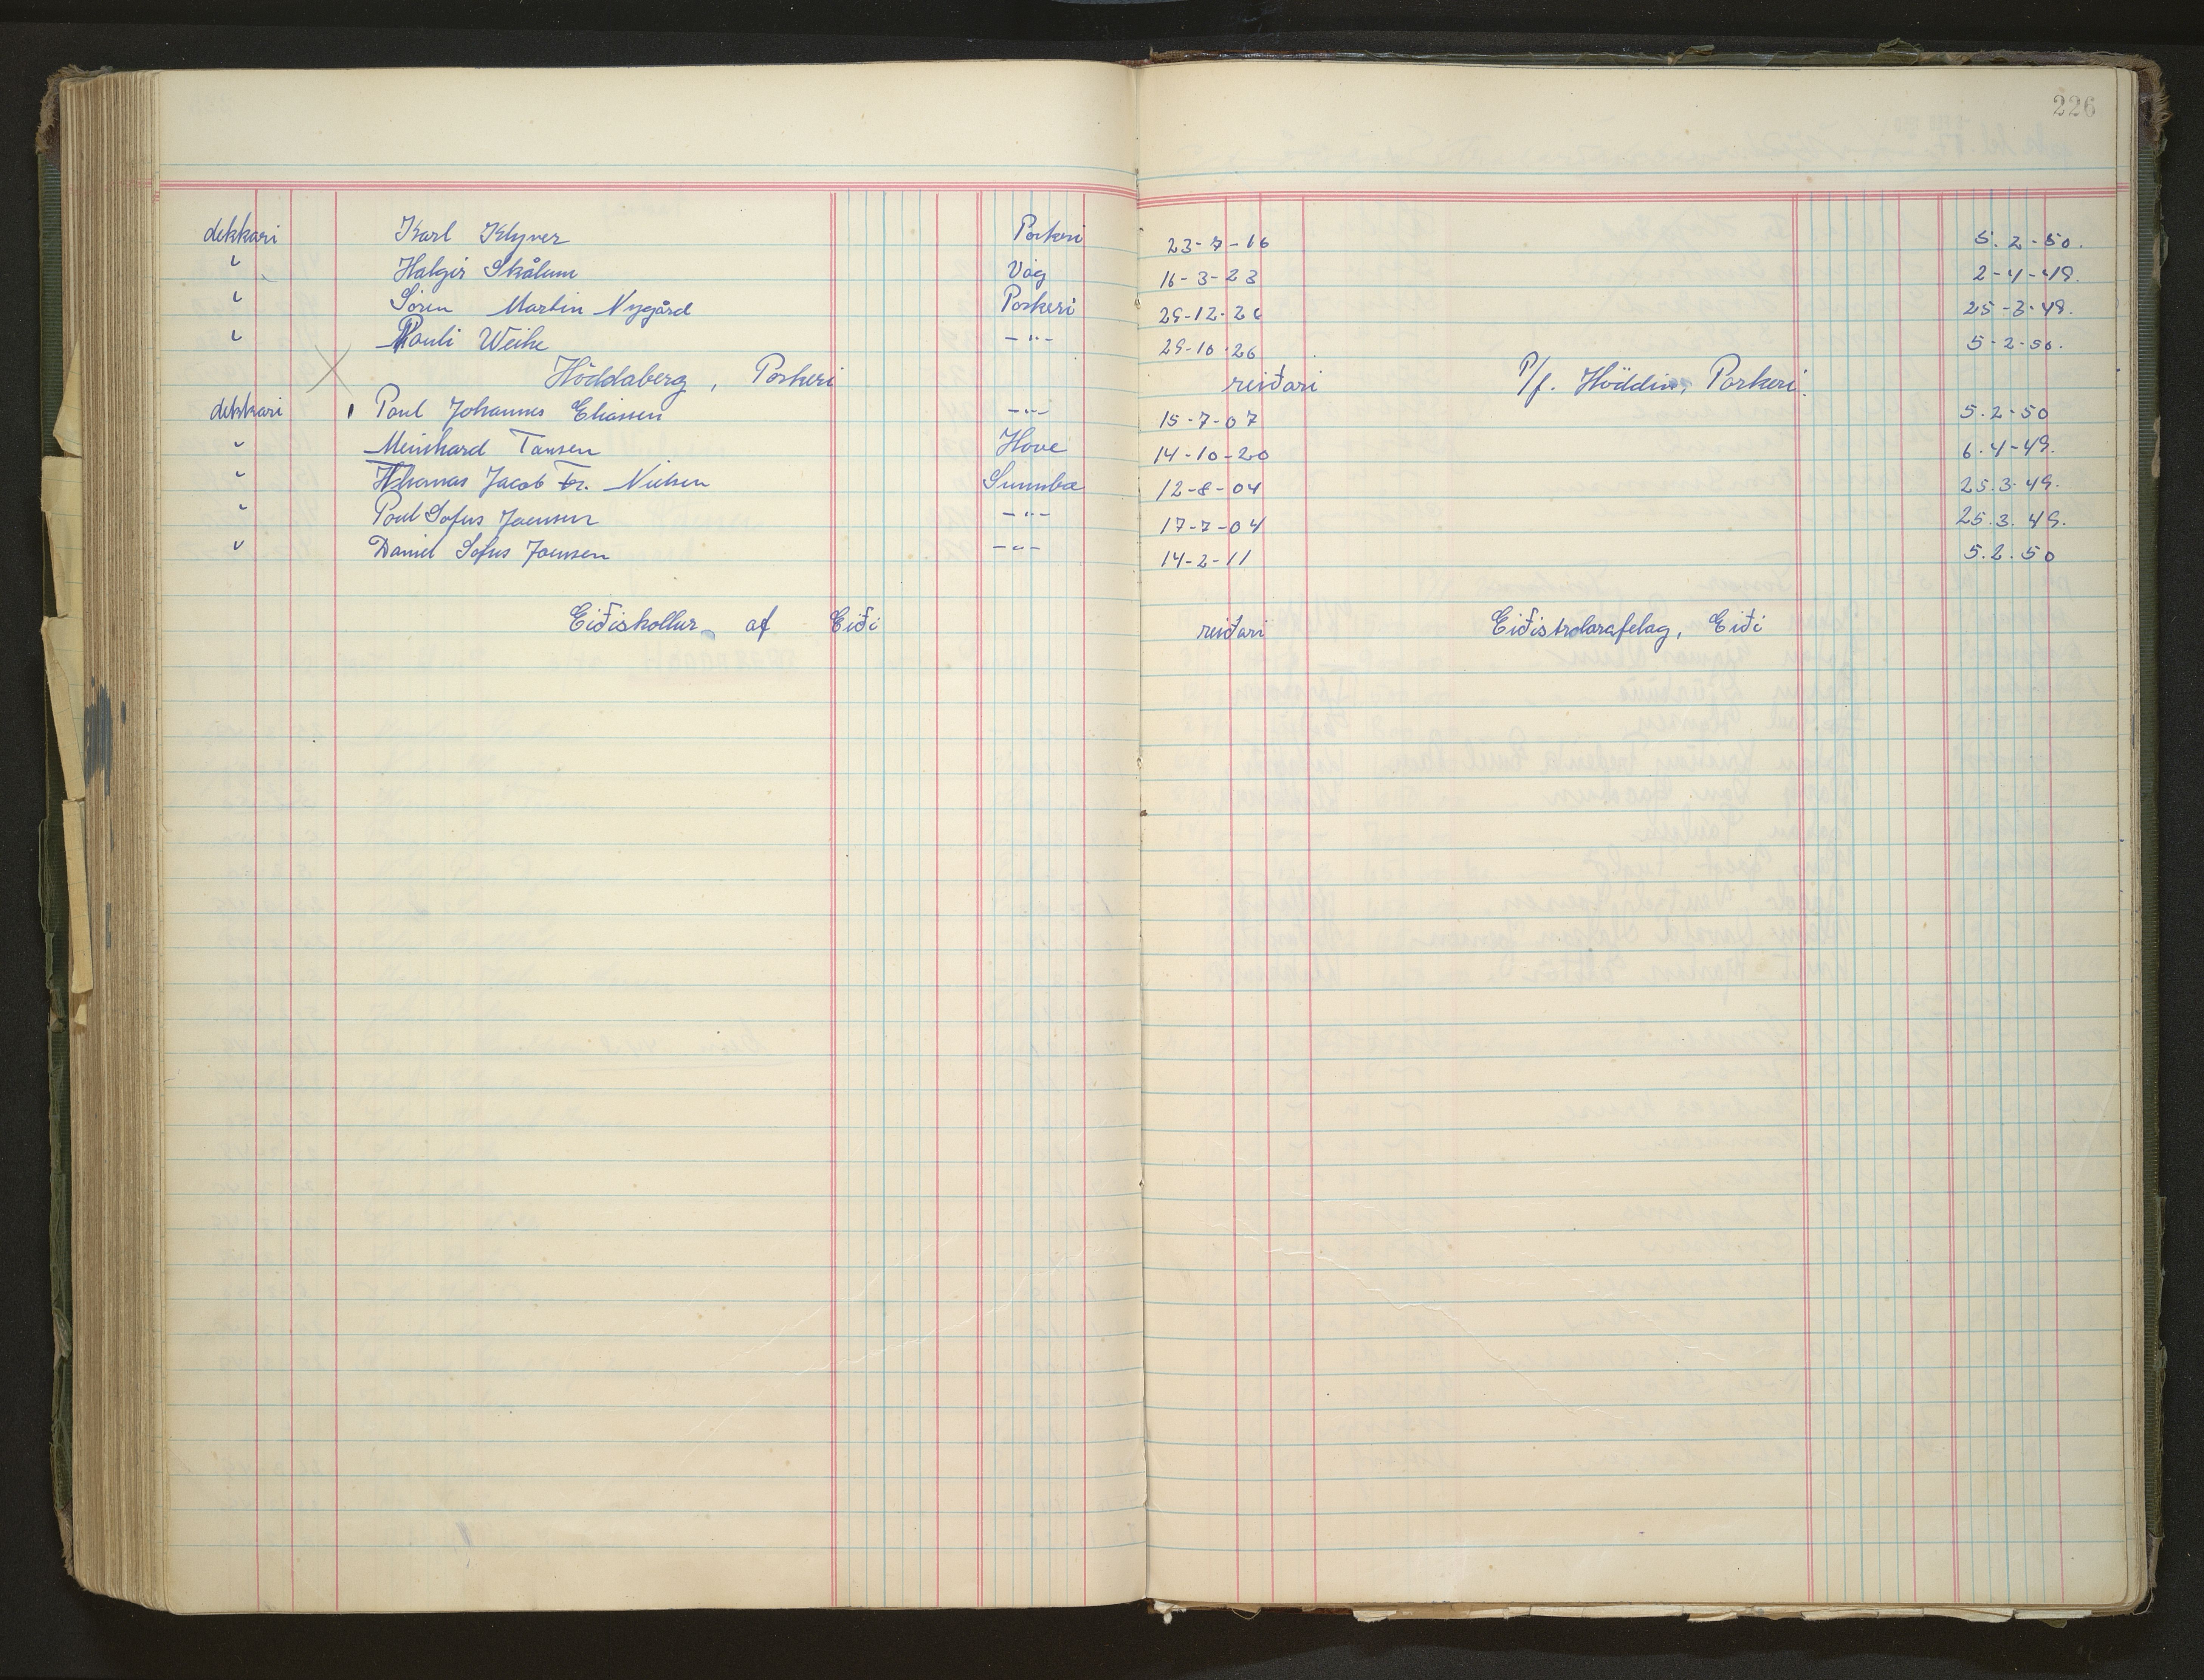 226
dekkari Karl Klyver Porkeri 23-7-16 5.2-50.
" Halgir Skålum Vág 16-3-23 2-4-49.
" Sören Martin Nygård Porkeri 29-12-26 25-3-49.
" Pauli Weihe -"- 29-10-26 5-2-50.
Höddaberg, Porkeri reiðari P/f. Höddin, Porkeri.
dekkari Poul Johannes Eliasen -"- 15-7-07 5.2-50
" Meinhard Tausen Hove 14-10-20 6.4-49.
" Thomas Jacob Fr. Nielsen Sumba 12-8-04 25.3-49.
" Poul Sofus Joensen -"- 17-7-04 25.3.49.
" Daniel Sofus Joensen -"- 14-2-11 5.2.50
Eiðiskollur af Eiði reiðari Eiðistrolarafelag, Eiði